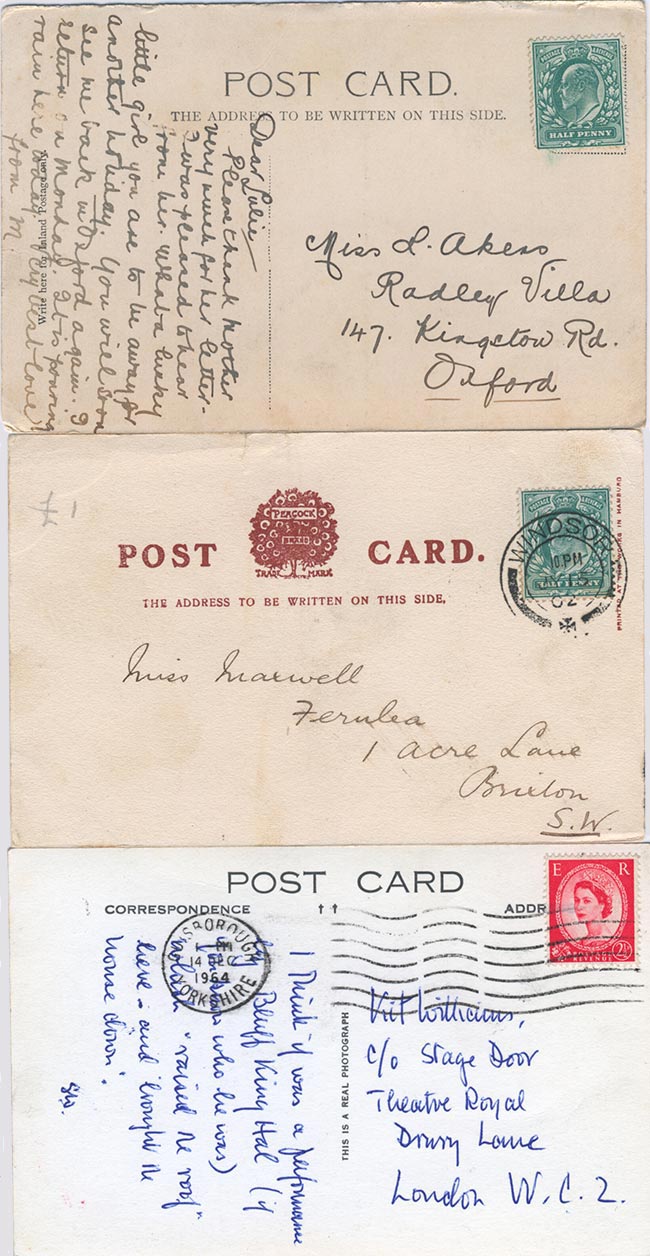 POST CARD.
THE ADDRESS TO BE WRITTEN ON THIS SIDE.
HALF PENNY
Write here for Inland Postage only.
Dear Lulie
Please thank Mother
very much for her letter.
I was pleased to hear
from her. What a lucky
little girl you are to be away for
another holiday. You will soon
see me back in Oxford again. I
return on Monday. It is pouring
rain here today. My best love
from M.
Miss L. Akers
Radley Villa
147. Kingston Rd.
Oxford
POST CARD.
PEACOCK
TRADE MARK
THE ADDRESS TO BE WRITTEN ON THIS SIDE.
HALF PENNY
WINDSOR
PRINTED AT THE WORKS IN HAMBURG
Miss Maxwell
Ferulea
1 Acre Lane
Brixton
S.W.
POST CARD
CORRESPONDENCE
ADDR
E R
2½
GUISBOROUGH
14 DEC
1964
YORKSHIRE
THIS IS A REAL PHOTOGRAPH
I think it was a performance
by Bluff King Hal (if
who he was)
which "raised the roof"
here - and brought the
house down".
Kit Williams,
c/o Stage Door
Theatre Royal
Drury Lane
London W.C.2.